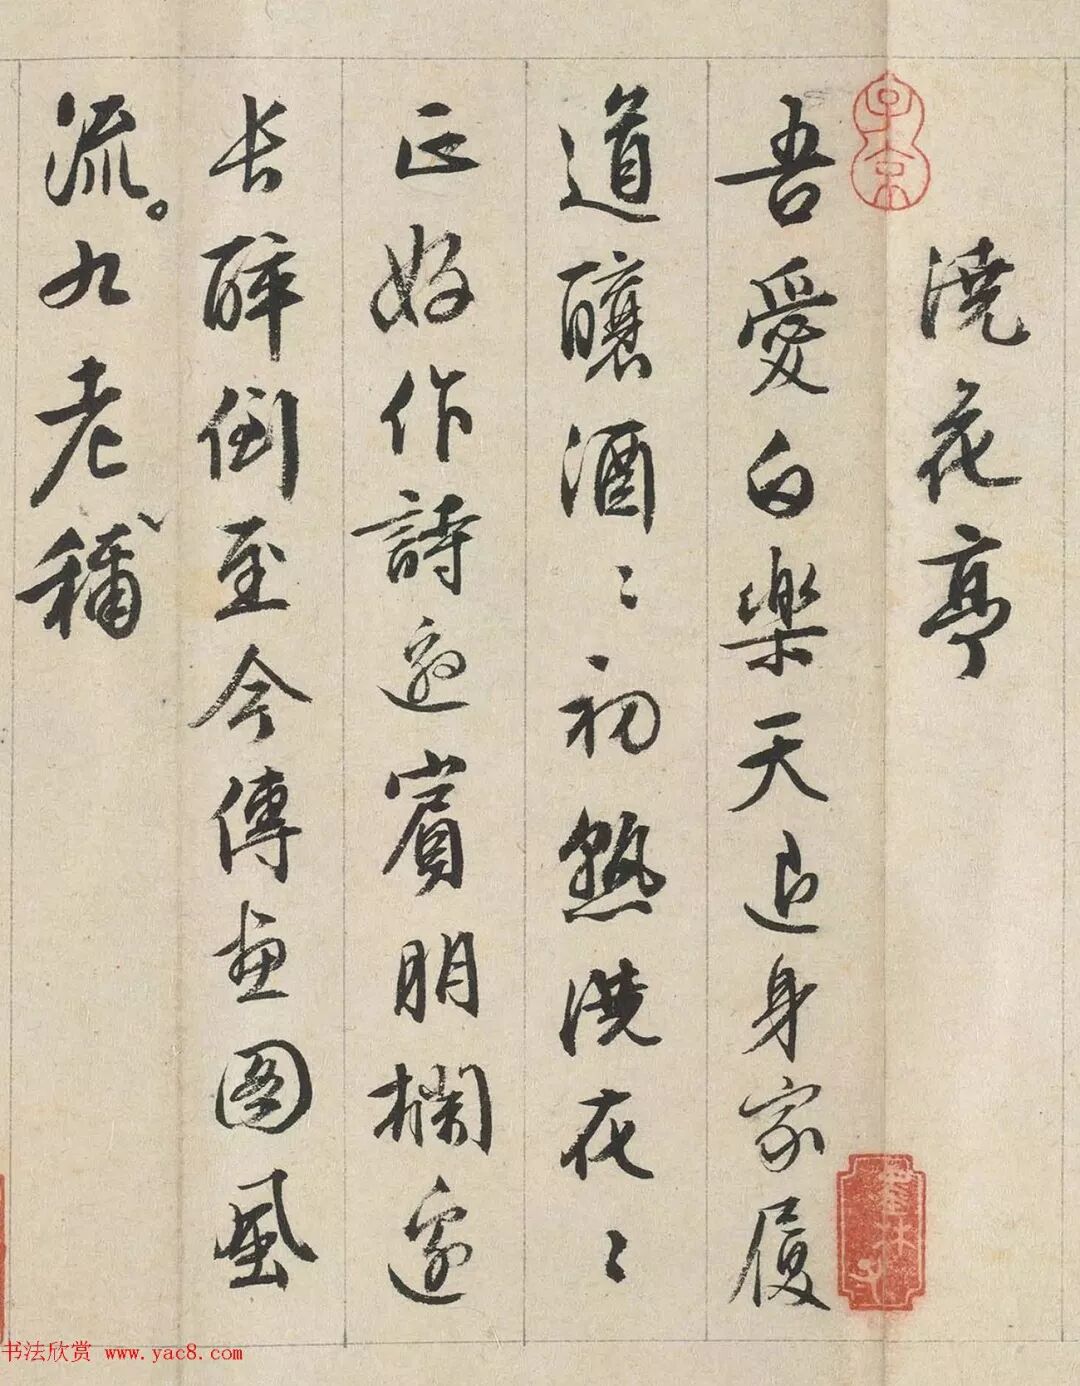 澆花亭
吾愛白樂天退身家履
道釀酒〻初熟澆花〻
正好作詩邀賓朋欄邊
长醉倒至今傳畫圖風
流。九老稱
子京
墨林子
书法欣赏 www.yac8.com